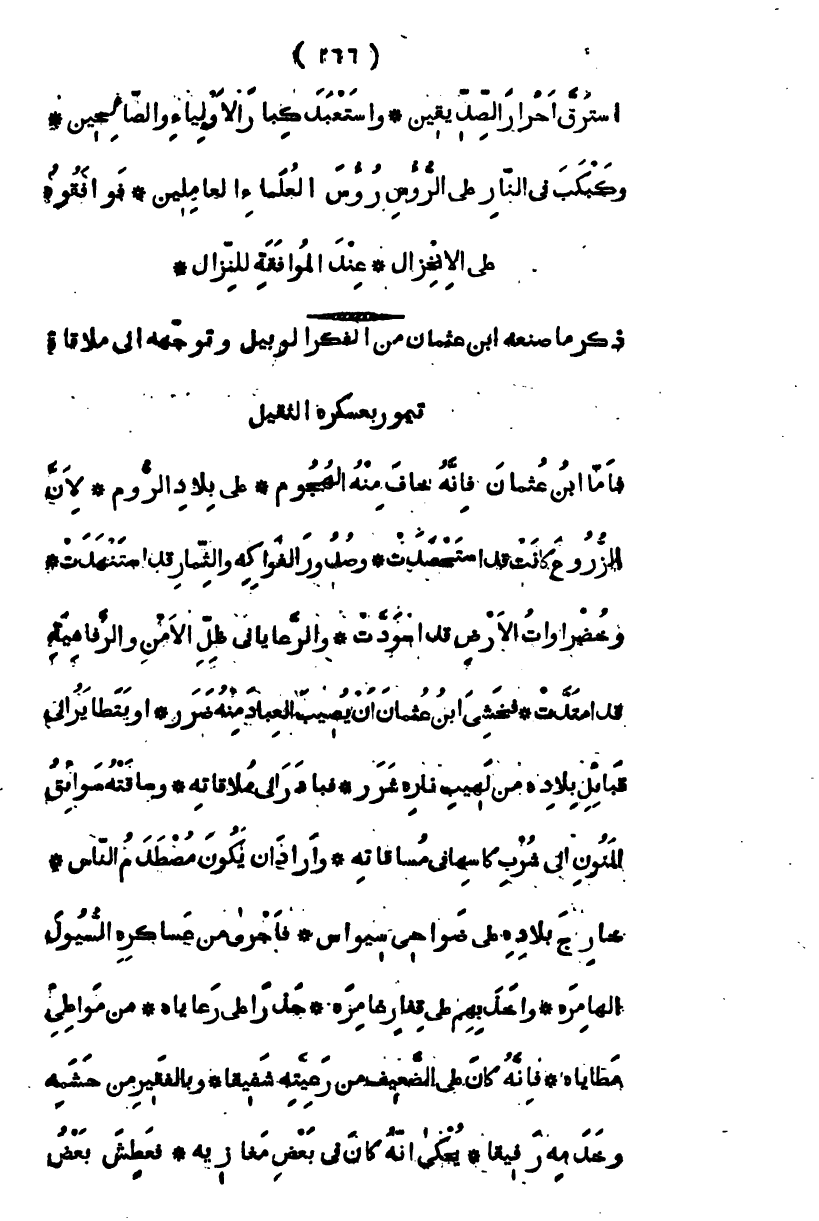 ( ٢٦٦ )
استَرَقَّ اَحْرارَ الصِّدِّيقِين * واستَعْبَدَ كِبارَ الاَوْلِياءِ والصّالِحِين *
وكَبْكَبَ فى النّارِ على الرُّؤُسِ رُؤُسَ العُلَماءِ العامِلِين * فَوافَقُوهُ
على الاِنْخِزال * عِنْدَ المُوافَقَةِ للنِّزال *
ذكر ما صنعه ابن عثمان من الفكر الوبيل وتوجّهه الى ملاقاة
تيمور بعسكره الثقيل
فاَمّا ابنُ عُثمانَ فاِنَّهُ خافَ مِنْهُ الهُجُوم * على بِلادِ الرُّوم * لِاَنَّ
الزُّرُوعَ كانَتْ قد استَحْصَدَتْ * وصُدُورَ الفَواكِهِ والثِّمارِ قد استَنْهَدَتْ *
وخُضْراواتُ الاَرْضِ قد اسْوَدَّتْ * والرَّعايا فى ظِلِّ الاَمْنِ والرَّفاهِيَةِ
قد امتَدَّتْ * فخَشِىَ ابنُ عُثمانَ اَنْ يُصِيبَ العِبادَ مِنْهُ ضَرَر * او يَتَطايَرُ الى
قَبائِلِ بِلادِه من لَهِيبِ نارِه شَرَر * فبادَرَ الى مُلاقاتِه * وساقَتْهُ سَوائِقُ
المَنُونِ الى شُرْبِ كاسِها فى مُساقاتِه * واَرادَ ان يَكُونَ مُصْطَدَمُ النّاس *
خارِجَ بلادِهِ على ضَواحِى سِيواس * فاَجْرَى من عَساكرِهِ السُّيُولَ
الهامِرَه * واَخَذَ بِهِم على قِفارٍ غامِرَه * حَذَرًا على رَعاياه * من مَواطِئِ
مَطاياه * فاِنَّهُ كانَ على الضَّعِيفِ من رَعِيَّتِهِ شَفِيقا * وبالفَقِيرِ من حَشَمِه
وخَدَمِه رَفِيقا * يُحْكَى انّهُ كانَ فى بَعْضِ مَغازِيه * فعَطِشَ بَعْضُ